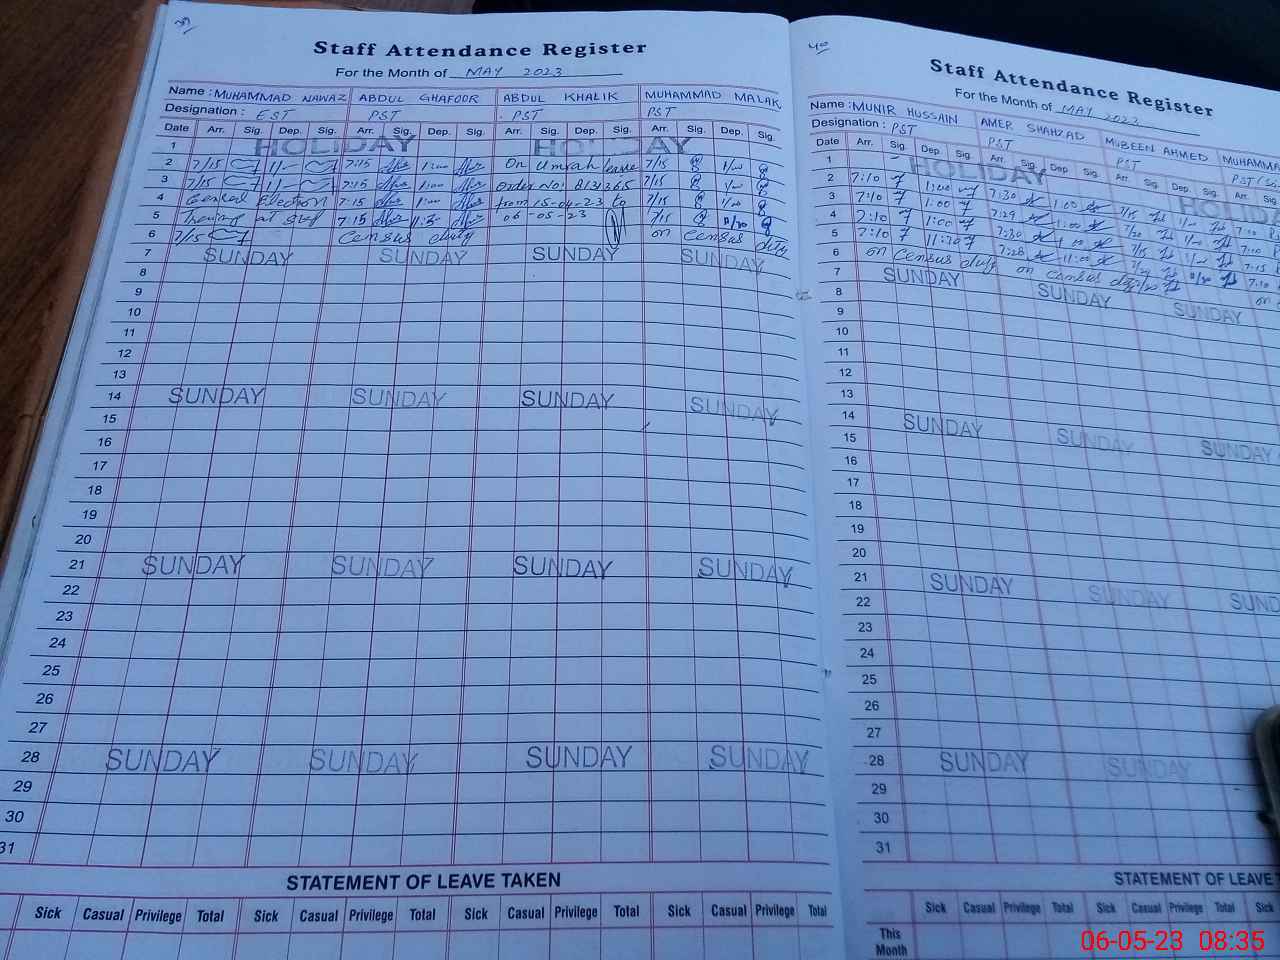 39
Staff Attendance Register
For the Month of MAY 2023
Name : MUHAMMAD NAWAZ ABDUL GHAFOOR ABDUL KHALIK MUHAMMAD MALAK
Designation : EST PST PST PST
Date Arr. Sig. Dep. Sig. Arr. Sig. Dep. Sig. Arr. Sig. Dep. Sig. Arr. Sig. Dep. Sig.
1 HOLIDAY HOLIDAY
2 7/15 7:15 1:00 On Umrah leave 7/15
3 7/15 7:15 1:00 order No: 7/15
4 Election 7:15 1:00 from 15-04-23 to 7/15
5 at 7:15 11:30 06-05-23 7/15
6 7/15 Census duty on Census duty
7 SUNDAY SUNDAY SUNDAY SUNDAY
8
9
10
11
12
13
14 SUNDAY SUNDAY SUNDAY SUNDAY
15
16
17
18
19
20
21 SUNDAY SUNDAY SUNDAY SUNDAY
22
23
24
25
26
27
28 SUNDAY SUNDAY SUNDAY SUNDAY
29
30
31
STATEMENT OF LEAVE TAKEN
Sick Casual Privilege Total Sick Casual Privilege Total Sick Casual Privilege Total Sick Casual Privilege Total
40
Staff Attendance Register
For the Month of MAY 2023
Name : MUNIR HUSSAIN AMER SHAHZAD MUBEEN AHMED MUHAMMA
Designation : PST PST PST PST
Date Arr. Sig. Dep. Sig. Arr. Sig. Dep Sig. Arr. Sig. Dep. Sig. Arr.
1 HOLIDAY HOLIDA
2 7:10 1:00 7:30 1:00 7/15 7:00
3 7:10 1:00 7:29 1:00 7/20 7:00
4 7:10 1:00 7:30 1:00 7/15 7:15
5 7:10 11:30 7:28 11:00 7/20 7:10
6 on Census duty on Census duty on
7 SUNDAY SUNDAY SUNDAY
8
9
10
11
12
13
14 SUNDAY SUNDAY SUNDAY
15
16
17
18
19
20
21 SUNDAY SUNDAY SUND
22
23
24
25
26
27
28 SUNDAY SUNDAY
29
30
31
STATEMENT OF LEAVE
Sick Casual Privilege Total Sick Casual Privilege Total Sick
This
Month
06-05-23 08:35